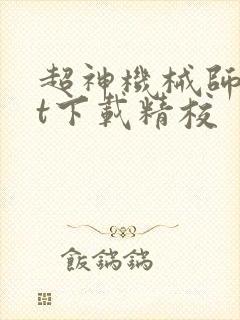 超神機械師
t下載精校
飯鍋鍋